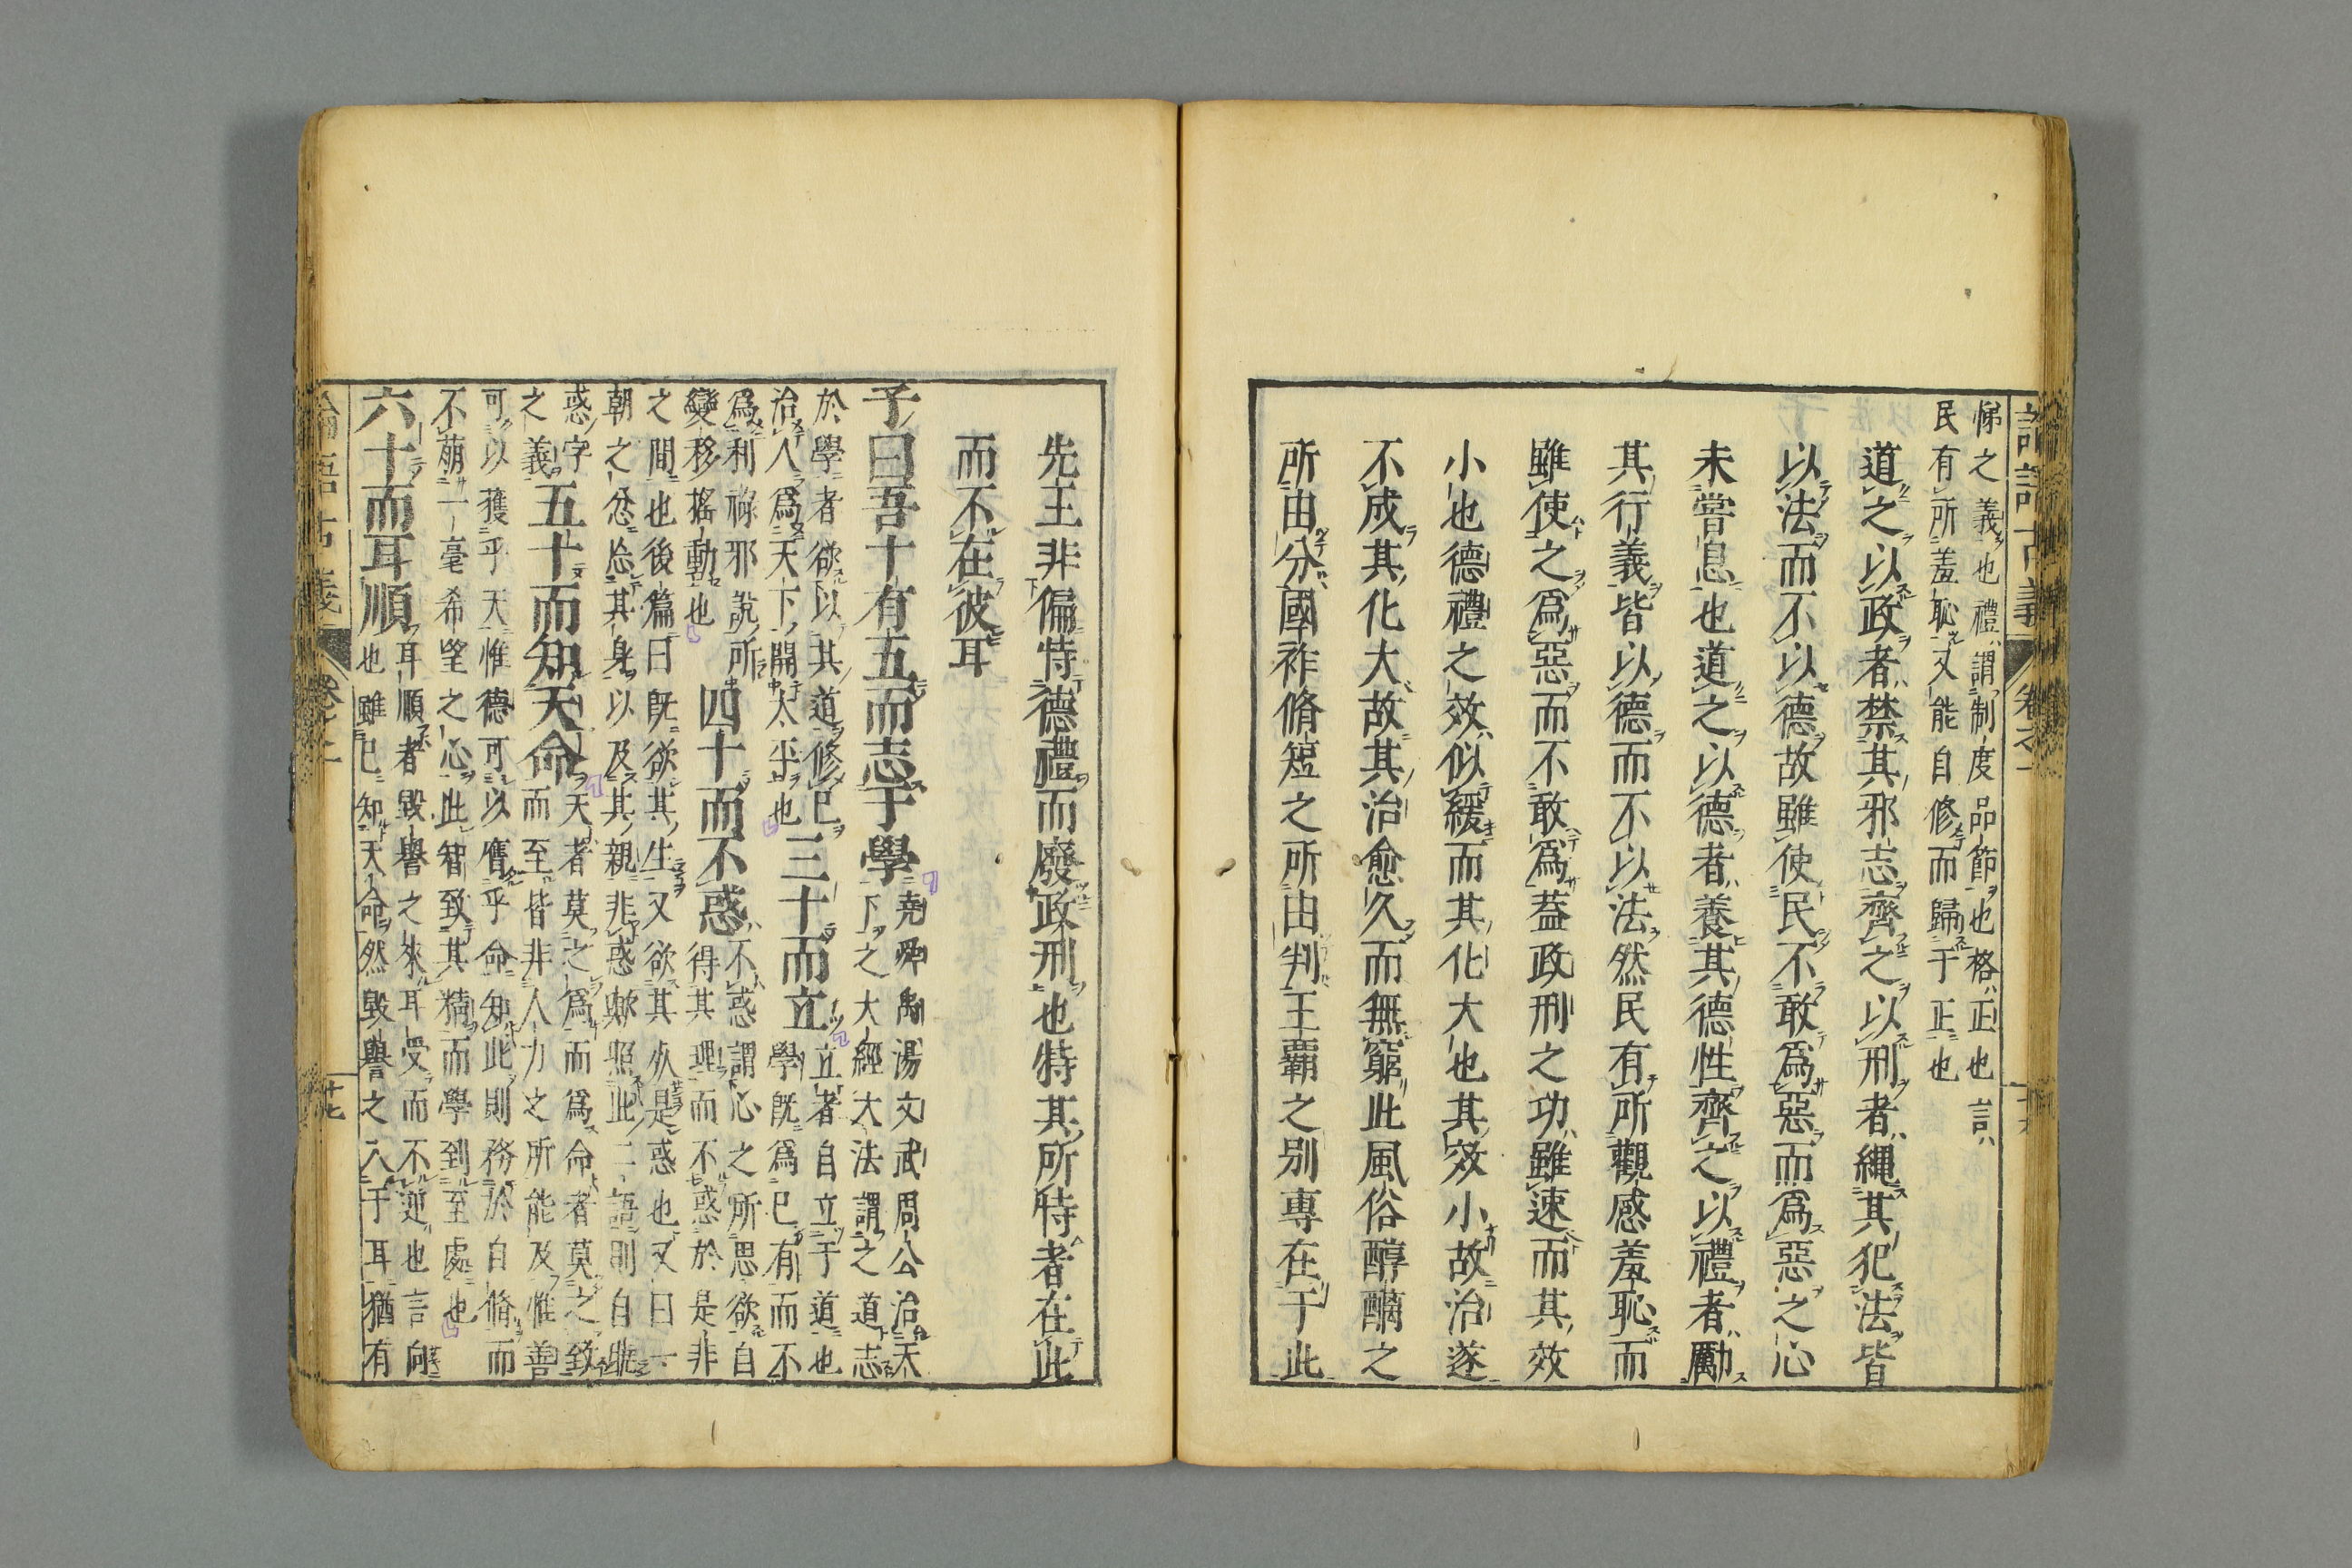 悌之義也禮謂制度品節也格正也言
民有所羞恥又能自修而歸于正也
道之以政者禁其邪志齊之以刑者繩其犯法皆
以法而不以德故雖使民不敢爲惡而爲惡之心
未嘗息也道之以德者養其德性齊之以禮者勵
其行義皆以德而不以法然民有所觀感羞恥而
雖使之爲惡而不敢爲蓋政刑之功雖速而其效
小也德禮之效似緩而其化大也其效小故治遂
不成其化大故其治愈久而無窮此風俗醇醨之
所由分國祚脩短之所由判王覇之別專在于此
先王非偏恃德禮而廢政刑也特其所恃者在此
而不在彼耳
子曰吾十有五而志于學
堯舜禹湯文武周公治天
下之大經大法謂之道志
於學者欲以其道修己
治人爲天下開太平也
三十而立
立者自立于道也
學既爲己有而不
爲利祿邪說所
變移搖動也
四十而不惑
不惑謂心之所思欲自
得其理而不惑於是非
之間也後篇曰既欲其生又欲其死是惑也又曰一
朝之忿忘其身以及其親非惑歟照此二語則自
惑字
之義
五十而知天命
天者莫之爲而爲命者莫之致
而至皆非人力之所能及惟善
可以獲乎天惟德可以膺乎命知此則務於自脩而
不萠一毫希望之心此智致其精而學到至處也
六十而耳順
耳順者毀譽之來耳受而不逆也言向
也雖已知天命然毀譽之入于耳猶有
論語古義
卷之一
十七